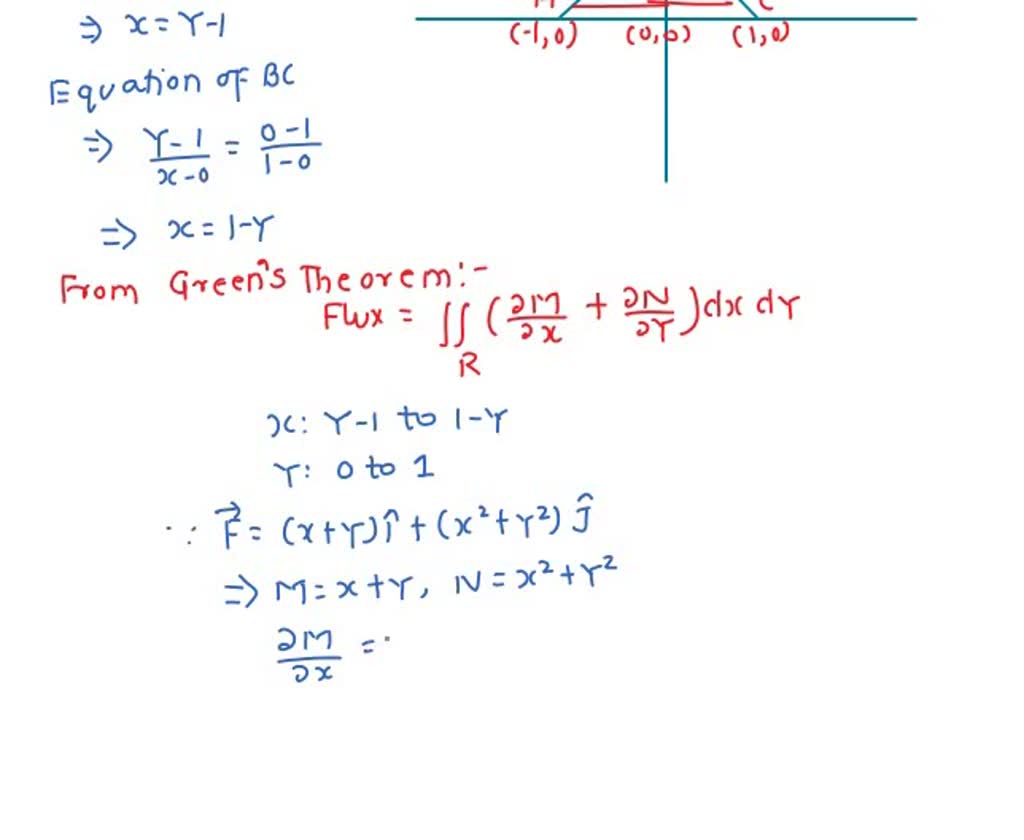 ⇒ x = Y-1
(-1,0) (0,0) (1,0)
Equation of BC
⇒ Y-1/x-0 = 0-1/1-0
⇒ x = 1-Y
From Green's Theorem:-
Flux = ∬_R (∂M/∂x + ∂N/∂Y) dx dY
x: Y-1 to 1-Y
Y: 0 to 1
∵ F⃗ = (x+Y)î + (x²+Y²)ĵ
⇒ M = x+Y, N = x²+Y²
∂M/∂x =